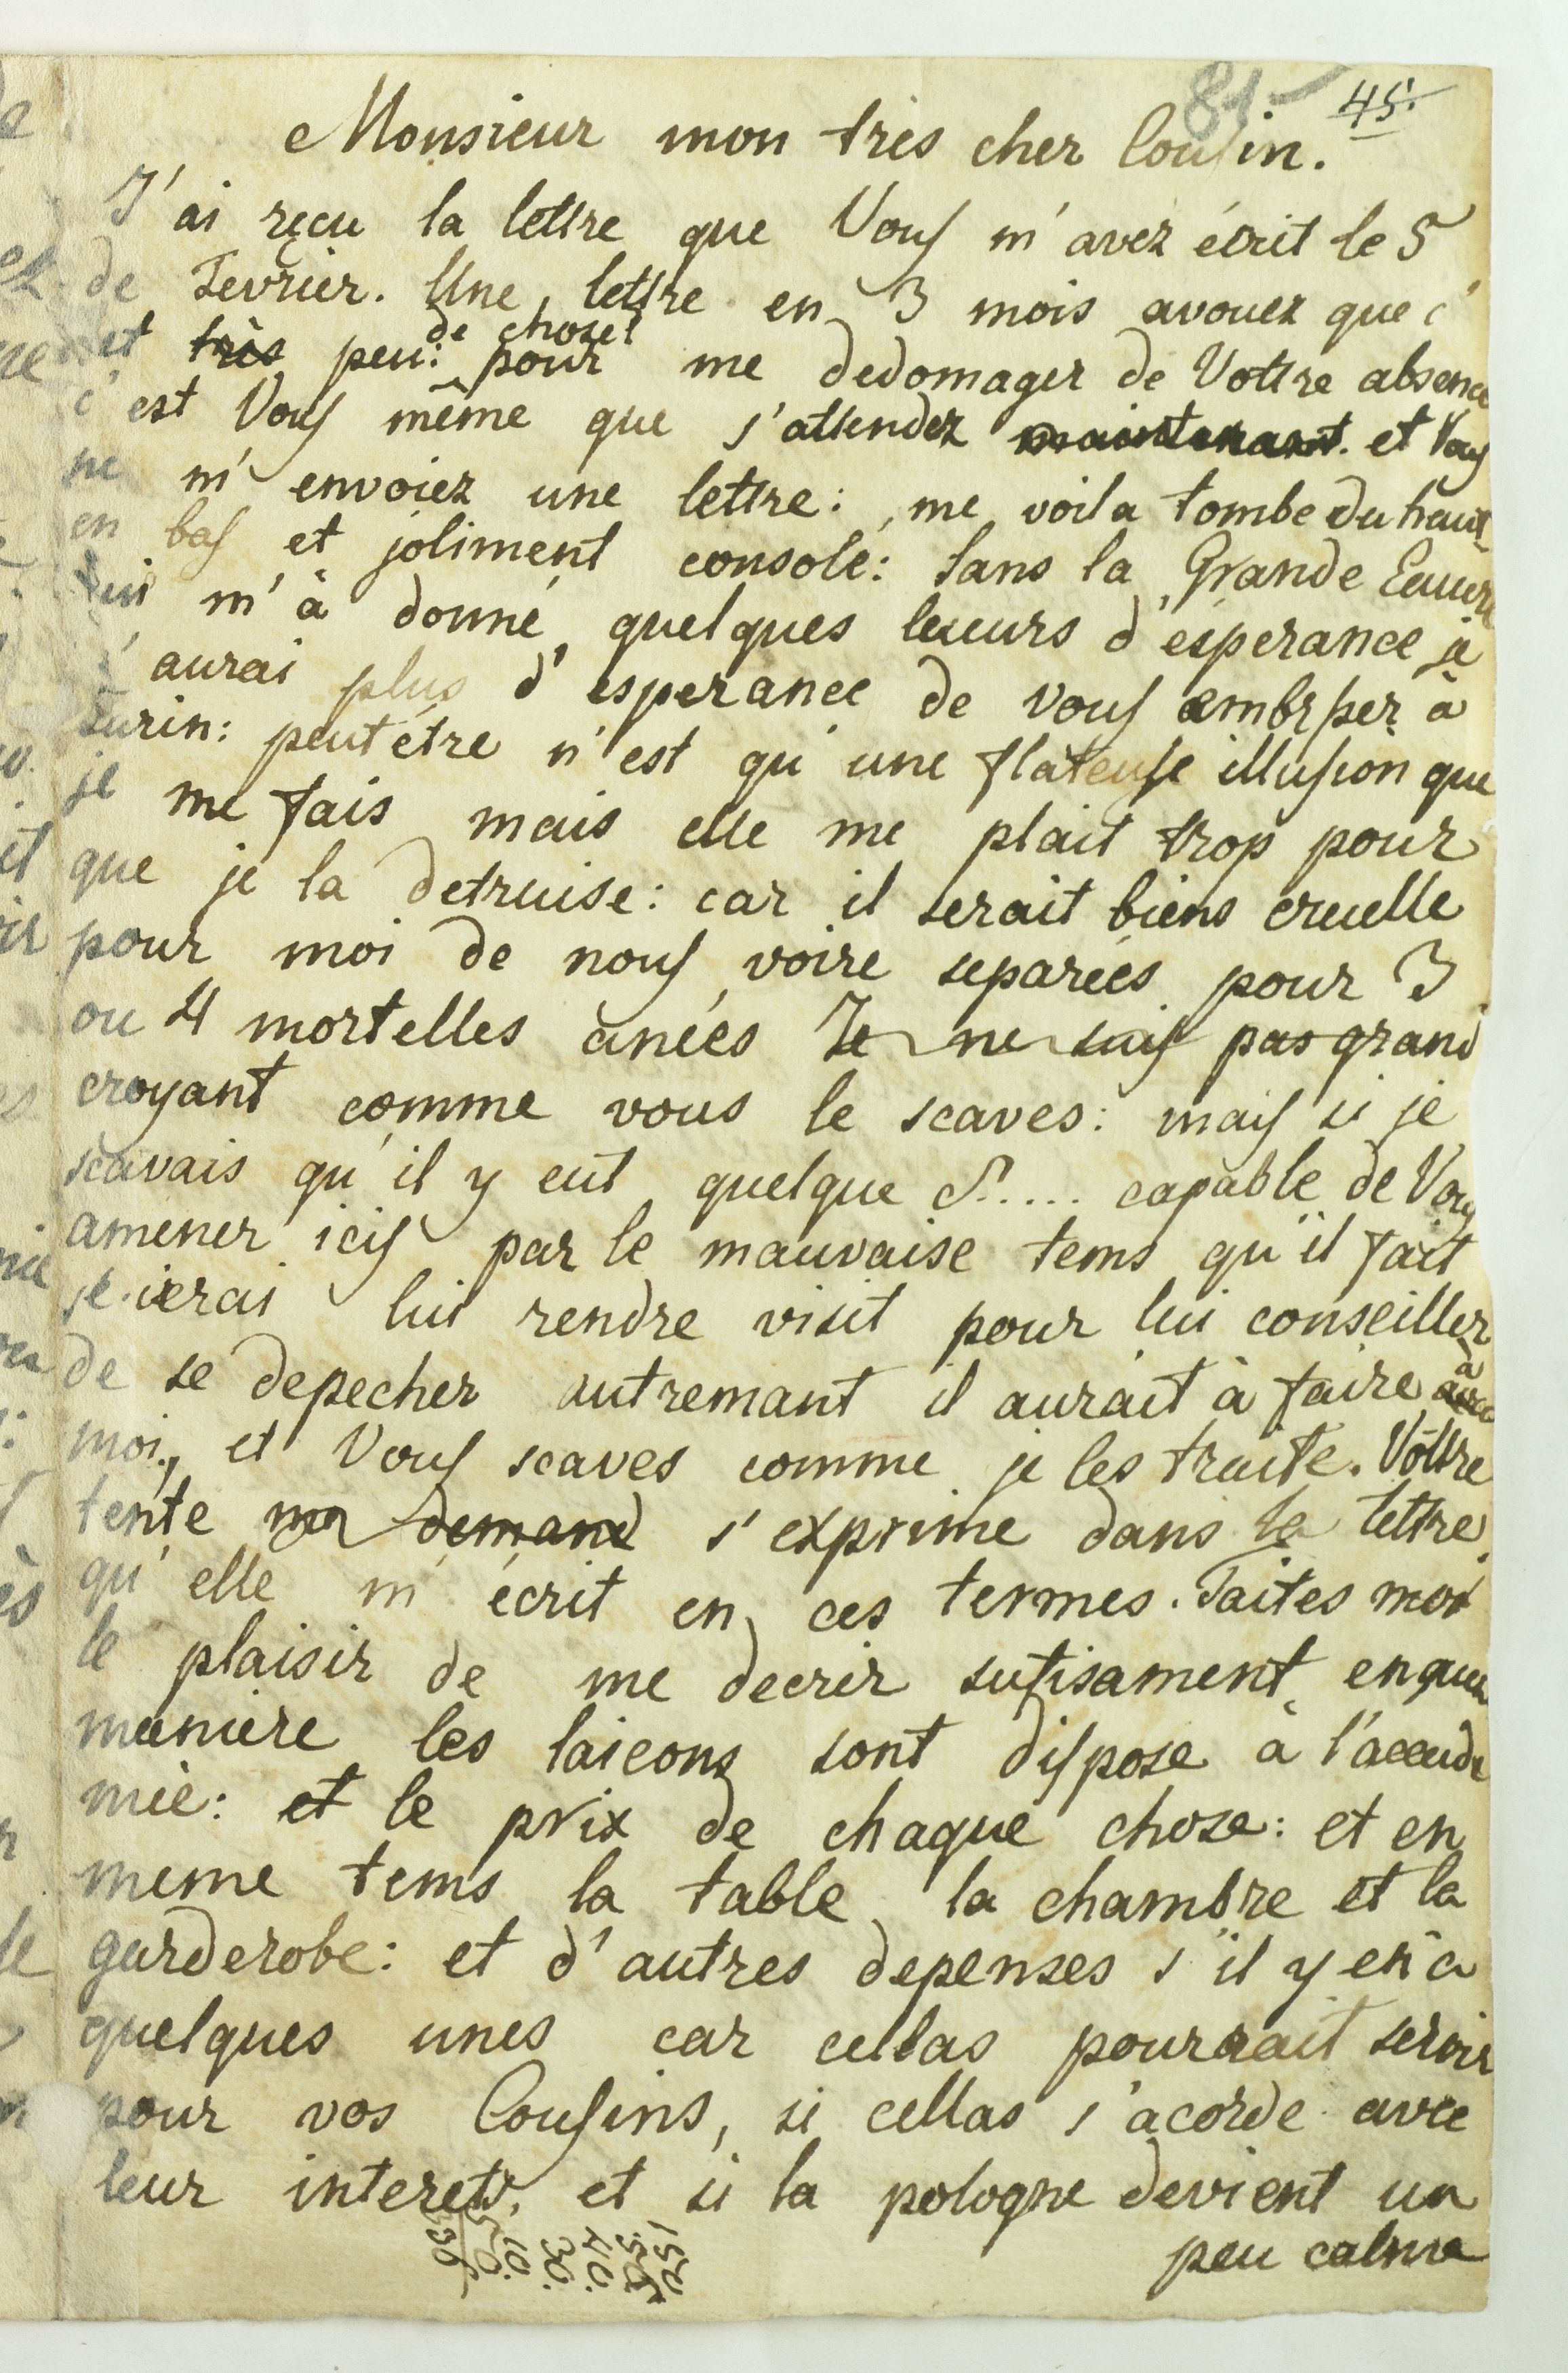 81 45.
Monsieur mon tres cher Cousin.
J'ai reçu la lettre que Vous m'avez écrit le 5
de Fevrier. Une lettre en 3 mois avouez que c'
et très peu: de chose! pour me dedomager de Vottre absence
c'est Vous même que j'attendez maintenant. et Vous
ne m'envoiez une lettre: me voila tombe du haut
en bas et joliment console: Sans la Grande
qui m'à donné quelques lueurs d'ésperance je
aurai plus d'esperance de vous à
turin: peut étre n'est qu'une flateuse illusion que
je me fais mais elle me plait trop pour
que je la detruise: car il serait biens cruelle
pour moi de nous voire separées pour 3
ou 4 mortelles anées Je ne suis pas grand
croyant comme vous le scaves: mais si je
scavais qu'il y eut quelque S..... capable de Vous
amener icis par le mauvaise tems qu'il fait
je ierai lui rendre visit pour lui conseiller
de se depecher autremant il aurait à faire avec à
moi, et Vous scaves comme je les traite. Vôttre
tente ma demand s'exprime dans la lettre
qu'elle m'écrit en ces termes. Faites moi
le plaisir de me decrir sufisament en que
maniere les laicons sont dispose à l'accade
mie: et le prix de chaque chose: et en
meme tems la table la chambre et la
garderobe: et d'autres depenses s'il y en a
quelques unes car cellas pourrait servir
pour vos Cousins, si cellas s'acorde avec
leur interets, et si la pologne devient un
peu calme